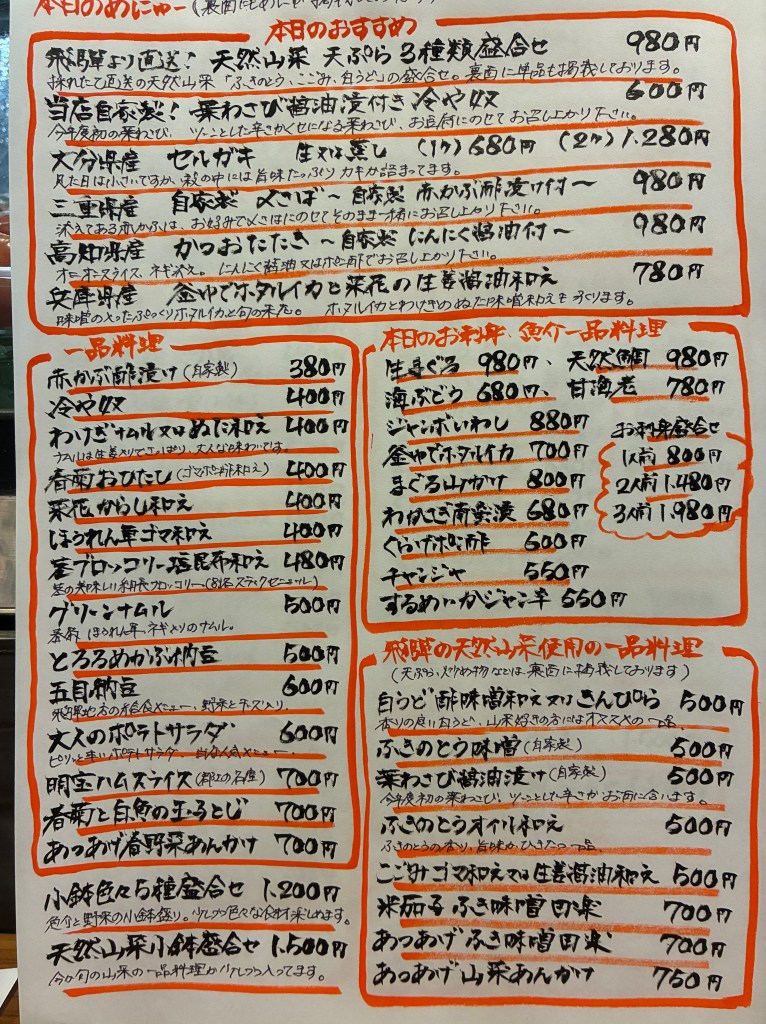 本日のめにゅー
本日のおすすめ
飛騨より直送! 天然山菜 天ぷら 3種類盛合せ 980円
採れたて直送の天然山菜「ふきのとう、こごみ、白うど」の盛合せ。裏面に単品も掲載しております。
当店自家製! 葉わさび醤油漬付き 冷や奴 600円
今年度初の葉わさび、ツーンとした辛さがくせになる葉わさび、お豆腐にのせてお召し上がり下さい。
大分県産 セルガキ 生又は蒸し (1ケ)680円 (2ケ)1.280円
見た目は小さいですが、殻の中には旨味たっぷりカキが詰まってます。
三重県産 自家製 〆さば〜自家製 赤かぶ酢漬け付〜 980円
添えてある赤かぶは、お好みで〆さばにのせてそのまま一緒にお召し上がり下さい。
高知県産 かつおたたき〜自家製 にんにく醤油付〜 980円
オニオンスライス、ネギ添え。にんにく醤油又はポン酢でお召し上がり下さい。
兵庫県産 釜ゆでホタルイカと菜花の生姜醤油和え 780円
味噌のたったぷっくりホタルイカと旬の菜花。 ホタルイカとわけぎのぬた味噌和えもつくります。
一品料理
赤かぶ酢漬け(自家製) 380円
冷や奴 400円
わけぎナムル又はぬた和え 400円
ナムルは生姜入りでさっぱり、大人な味わいです。
春菊おひたし(ゴマポン酢和え) 400円
菜花からし和え 400円
ほうれん草ゴマ和え 400円
茎ブロッコリー塩昆布和え 480円
茎の美味しい細長ブロッコリー(別名スティックセニョール)
グリーンナムル 500円
春菊、ほうれん草、ネギ入りのナムル。
とろろめかぶ納豆 500円
五目納豆 600円
飛騨地方の給食メニュー、野菜とチーズ入り。
大人のポテトサラダ 600円
ピリッと辛いポテトサラダ、当店人気メニュー。
明宝ハムスライス(郡上の名産) 700円
春菊と白魚の玉子とじ 700円
あつあげ春野菜あんかけ 700円
小鉢色々5種盛合せ 1.200円
魚介と野菜の小鉢盛り。少しづつ色々な食材楽しめます。
天然山菜小鉢盛合せ 1.500円
今が旬の山菜の一品料理が少しづつ入ってます。
本日のお刺身、魚介一品料理
生まぐろ 980円、天然鯛 980円
海ぶどう 680円、甘海老 780円
ジャンボいわし 880円
釜ゆでホタルイカ 700円
まぐろ山かけ 800円
わかさぎ南蛮漬 680円
くらげポン酢 600円
チャンジャ 550円
するめいかジャン辛 550円
お刺身盛合せ
1人前 800円
2人前 1.480円
3人前 1.980円
飛騨の天然山菜使用の一品料理
(天ぷら、炒め物などは、裏面に掲載しております)
白うど 酢味噌和え又はきんぴら 500円
香りの良い白うど、山菜好きの方にはオススメの一品
ふきのとう味噌(自家製) 500円
葉わさび醤油漬け(自家製) 500円
今年度初の葉わさび、ツーンとした辛さがお酒に合います。
ふきのとうオイル和え 500円
ふきのとうの香り、旨味がひきたつ一品
こごみ ゴマ和え又は生姜醤油和え 500円
米茄子 ふき味噌田楽 700円
あつあげ ふき味噌田楽 700円
あつあげ 山菜あんかけ 750円